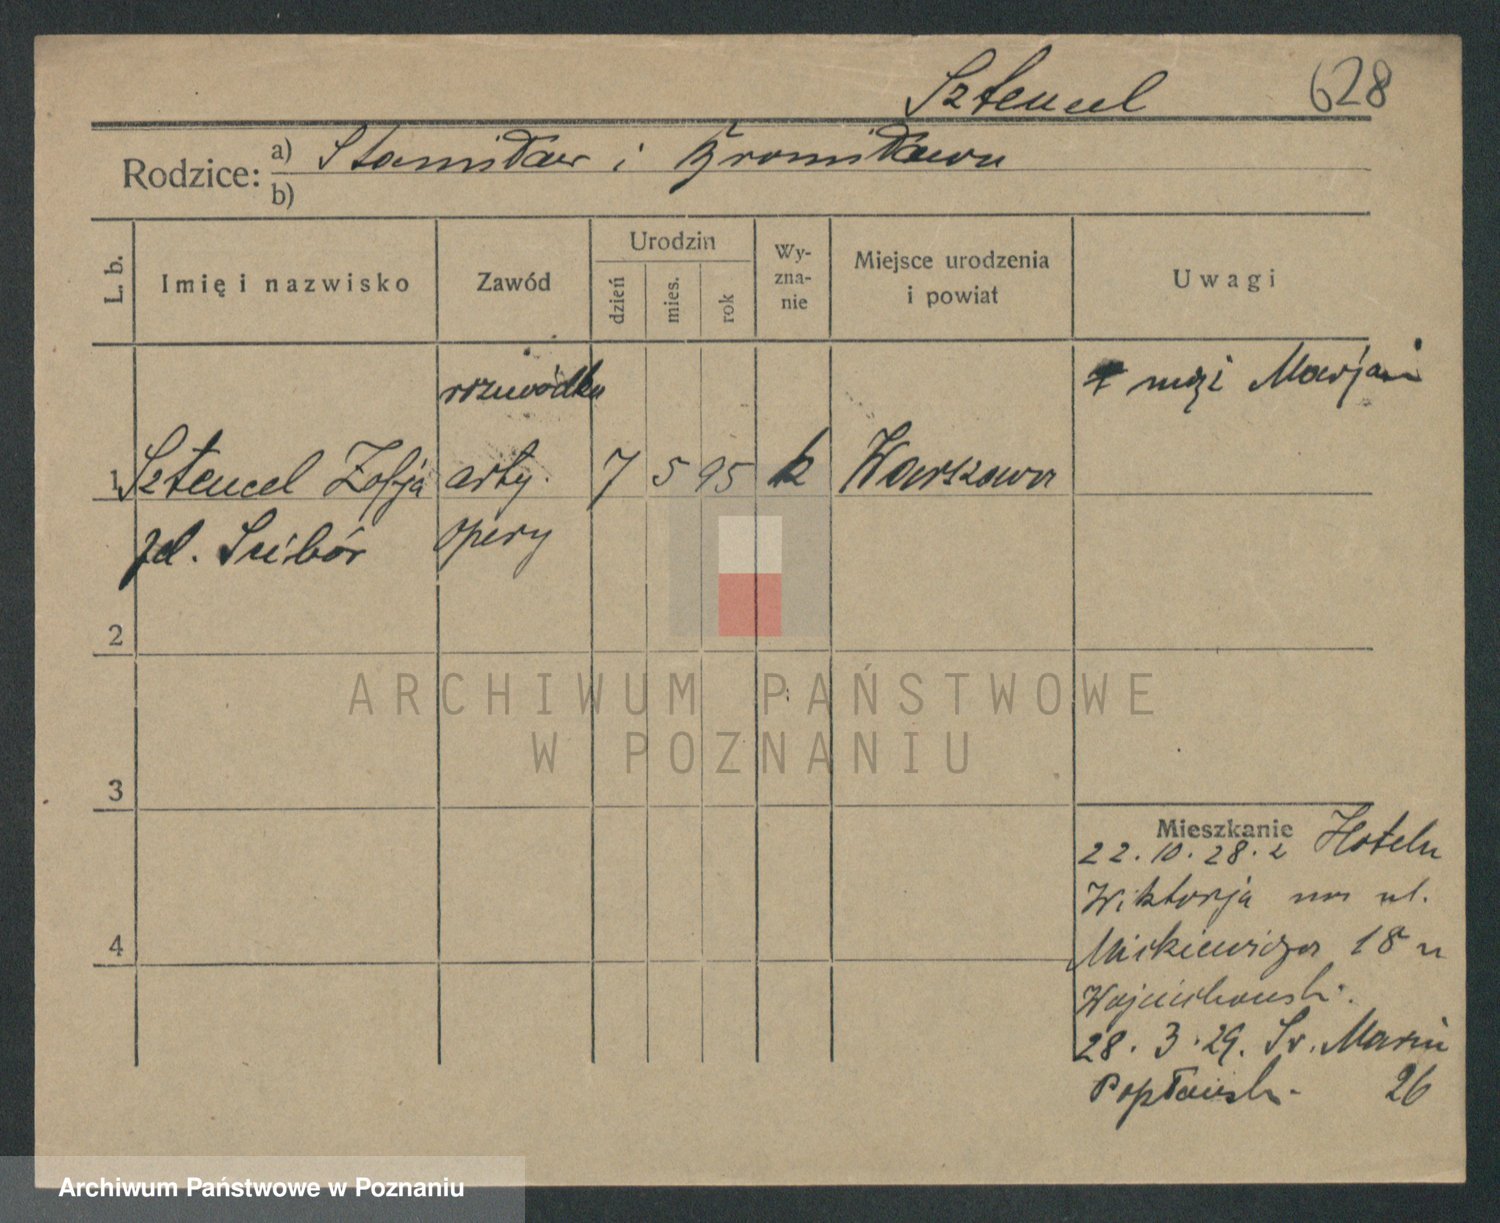 Sztencel 628
Rodzice: a) Stanisław i Bronisława
b)
L. b. Imię i nazwisko Zawód Urodzin dzień mies. rok Wy-zna-nie Miejsce urodzenia i powiat Uwagi
rozwódka mąż Marjan
1 Sztencel Zofja arty. 7 5 95 k Warszawa
zd. Ścibór opery
2
ARCHIWUM PAŃSTWOWE
W POZNANIU
3
Mieszkanie
22.10.28. z Hotelu
Wiktorja na ul.
Mickiewicza 18 u
Wojciechowski.
28.3.29. Św. Marcin
Popławski. 26
4
Archiwum Państwowe w Poznaniu